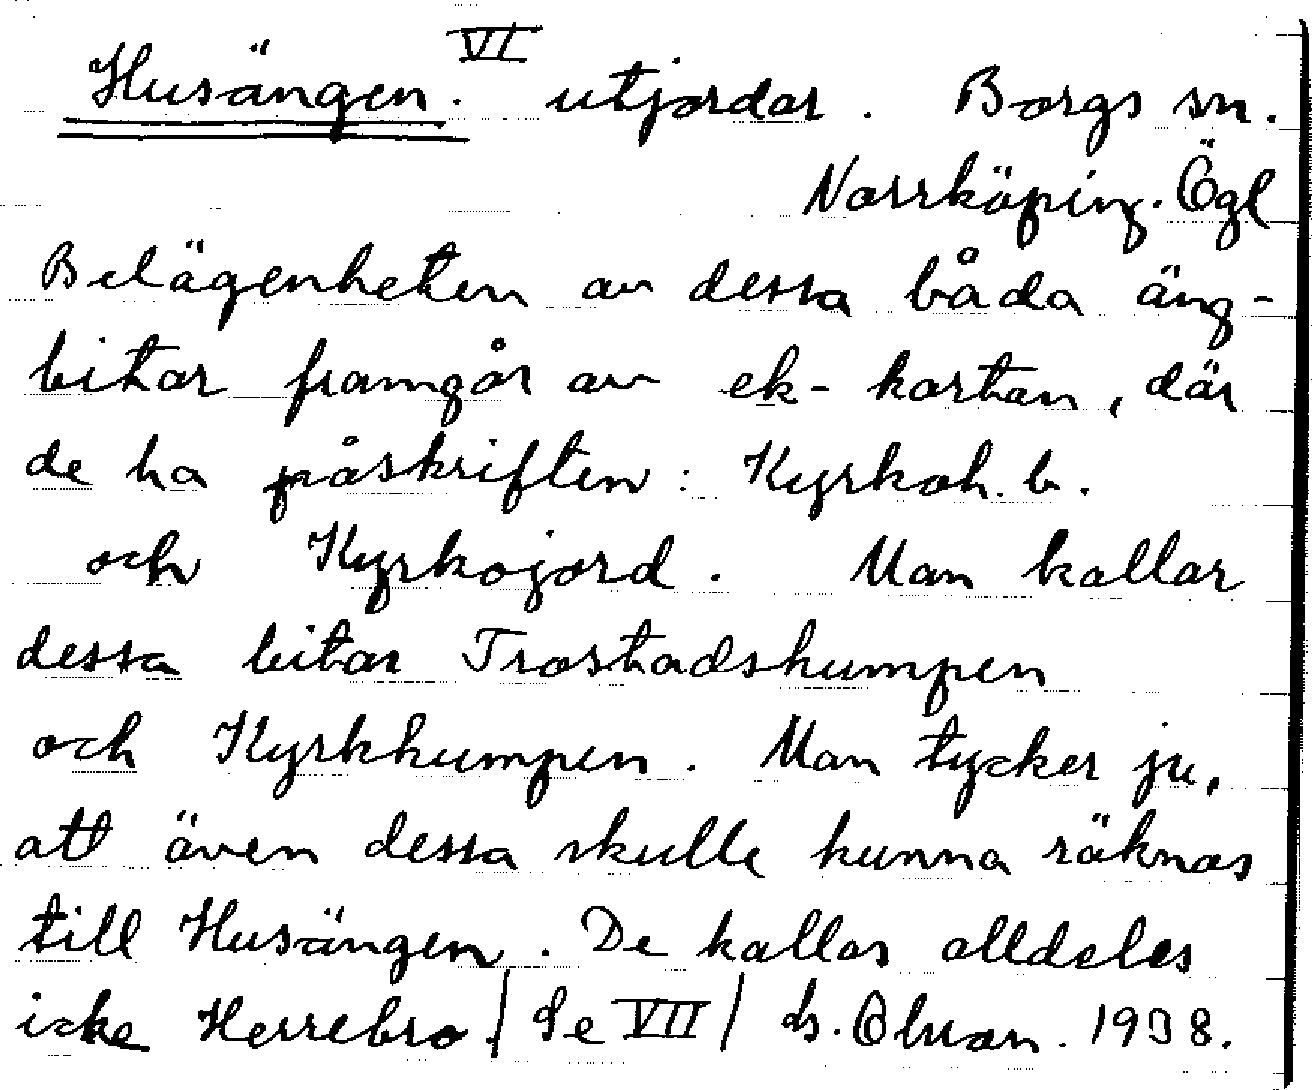 Husängen. VI utjordar. Borgs sn.
Norrköping. Ögl
Belägenheten av dessa båda äng-
bitar framgår av ek-kartan, där
de ha påskriften: Kyrkoh. b.
och Kyrkojord. Man kallar
dessa bitar Trostadshumpen
och Kyrkhumpen. Man tycker ju,
att även dessa skulle kunna räknas
till Husängen. De kallas alldeles
icke Herrebro. / Se VII / ds. 1938.